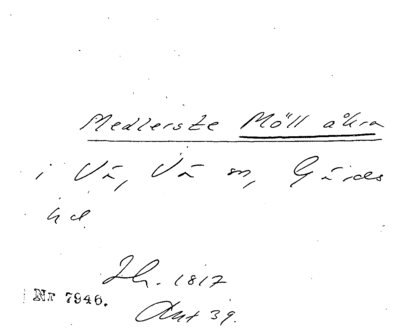 Medlerste Möll åkra
i Vä, Vä sn, Gärds
hd
Sh. 1817
Akt 39.
Nr 7946.